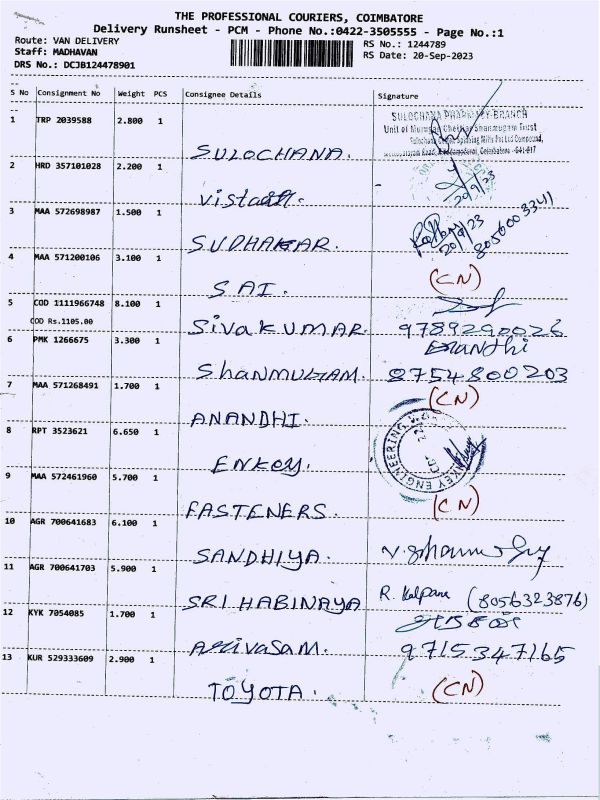 THE PROFESSIONAL COURIERS, COIMBATORE
Delivery Runsheet - PCM - Phone No.:0422-3505555 - Page No.:1
Route: VAN DELIVERY RS No.: 1244789
Staff: MADHAVAN RS Date: 20-Sep-2023
DRS No.: DCJB124478901
S No Consignment No Weight PCS Consignee Details Signature
1 TRP 2039588 2.800 1
SULOCHANA PHARMACY-BRANCH
SULOCHANA.
2 HRD 357101028 2.200 1
20/9/23
3 MAA 572698987 1.500 1
20/9/23 8056003341
SUDHAKAR.
4 MAA 571200106 3.100 1 (CN)
SAI.
5 COD 1111966748 8.100 1
COD Rs.1105.00
SIVAKUMAR. 9789290026
6 PMK 1266675 3.300 1
ShANMUGAM. 8754800203
7 MAA 571268491 1.700 1 (CN)
ANANDHI.
8 RPT 3523621 6.650 1
ENKEY ENGINEERING
ENKEY.
9 MAA 572461960 5.700 1 (CN)
FASTENERS.
10 AGR 700641683 6.100 1
SANDHIYA.
11 AGR 700641703 5.900 1
SRI HABINAYA R. Kalpana (8056323876)
12 KYK 7054085 1.700 1
9715347165
13 KUR 529333609 2.900 1 (CN)
TOYOTA.